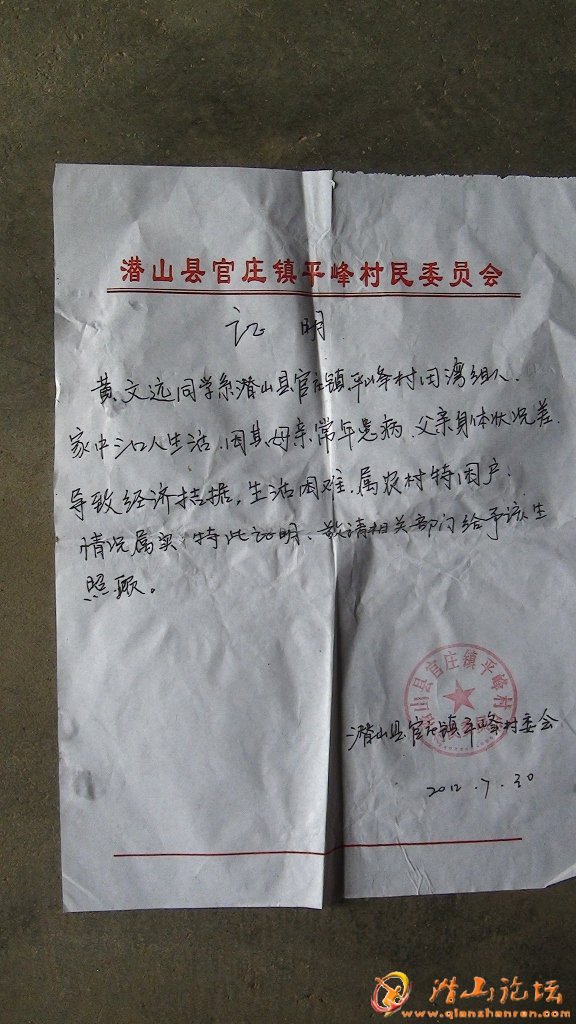 潜山县官庄镇平峰村民委员会
证 明
黄文远同学系潜山县官庄镇平峰村田湾组人、
家中三口人生活、因其母亲常年患病、父亲身体状况差、
导致经济拮据、生活困难、属农村特困户、
情况属实、特此证明、敬请相关部门给予该生
照顾。
潜山县官庄镇平峰村
潜山县官庄镇平峰村委会
2012.7.30
潜山论坛
www.qianshanren.com